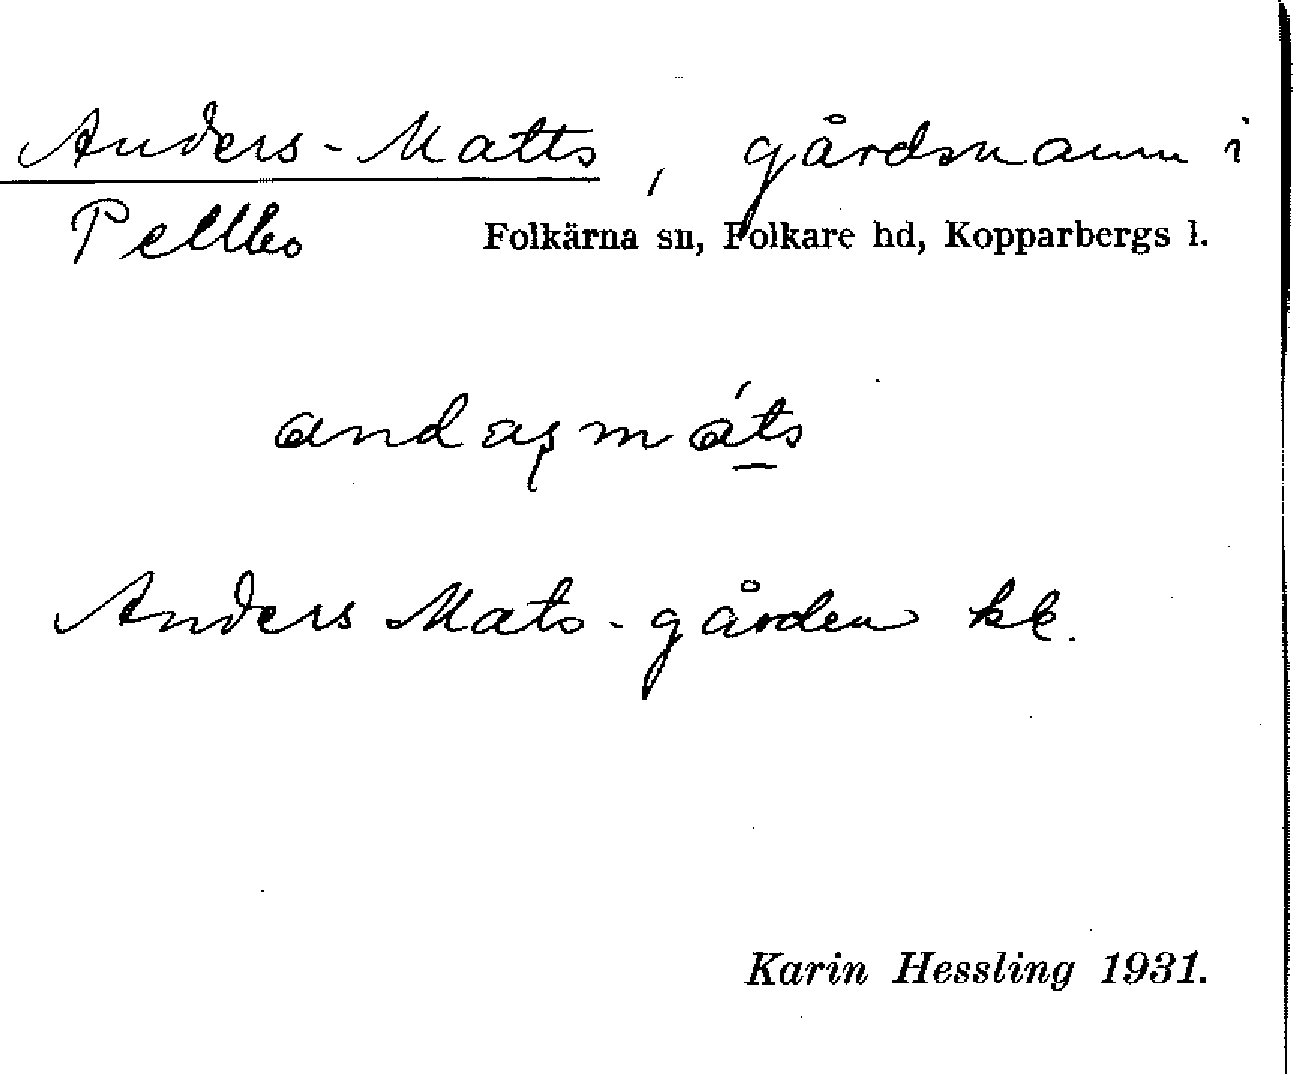 Anders-Matts, gårdsnamn i
Pellbo Folkärna sn, Folkare hd, Kopparbergs l.
Anders Mats-gården kk.
Karin Hessling 1931.